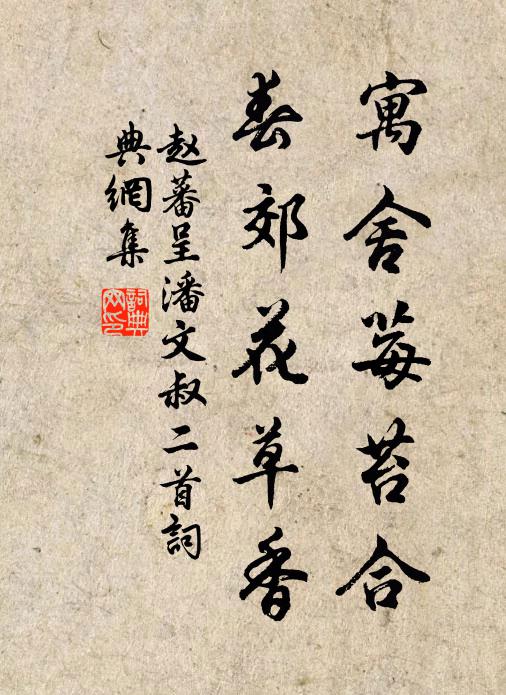 寓舍莓苔合
春郊花草香
赵蕃呈潘文叔二首詞
典網集
詞典
网印